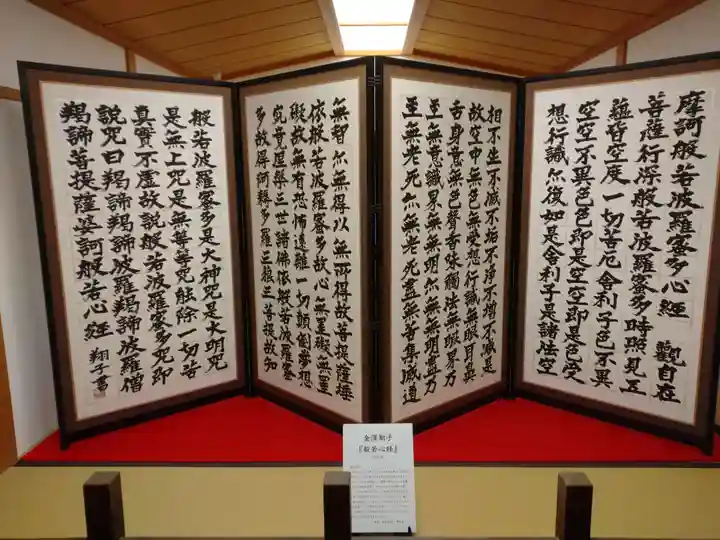 摩訶般若波羅蜜多心經 觀自在
菩薩行深般若波羅蜜多時照見五
蘊皆空度一切苦厄舎利子色不異
空空不異色色即是空空即是色受
想行識亦復如是舎利子是諸法空
相不生不滅不垢不浄不增不減是
故空中無色無受想行識無眼耳鼻
舌身意無色聲香味觸法無眼界乃
至無意識界無無明亦無無明盡乃
至無老死亦無老死盡無苦集滅道
無智亦無得以無所得故菩提薩埵
依般若波羅蜜多故心無罣礙無罣
礙故無有恐怖遠離一切顛倒夢想
究竟涅槃三世諸佛依般若波羅蜜
多故得阿耨多羅三藐三菩提故知
般若波羅蜜多是大神咒是大明咒
是無上咒是無等等咒能除一切苦
真實不虚故説般若波羅蜜多咒即
説咒曰羯諦羯諦波羅羯諦波羅僧
羯諦菩提薩婆訶般若心經 翔子書
金澤翔子
『般若心経』